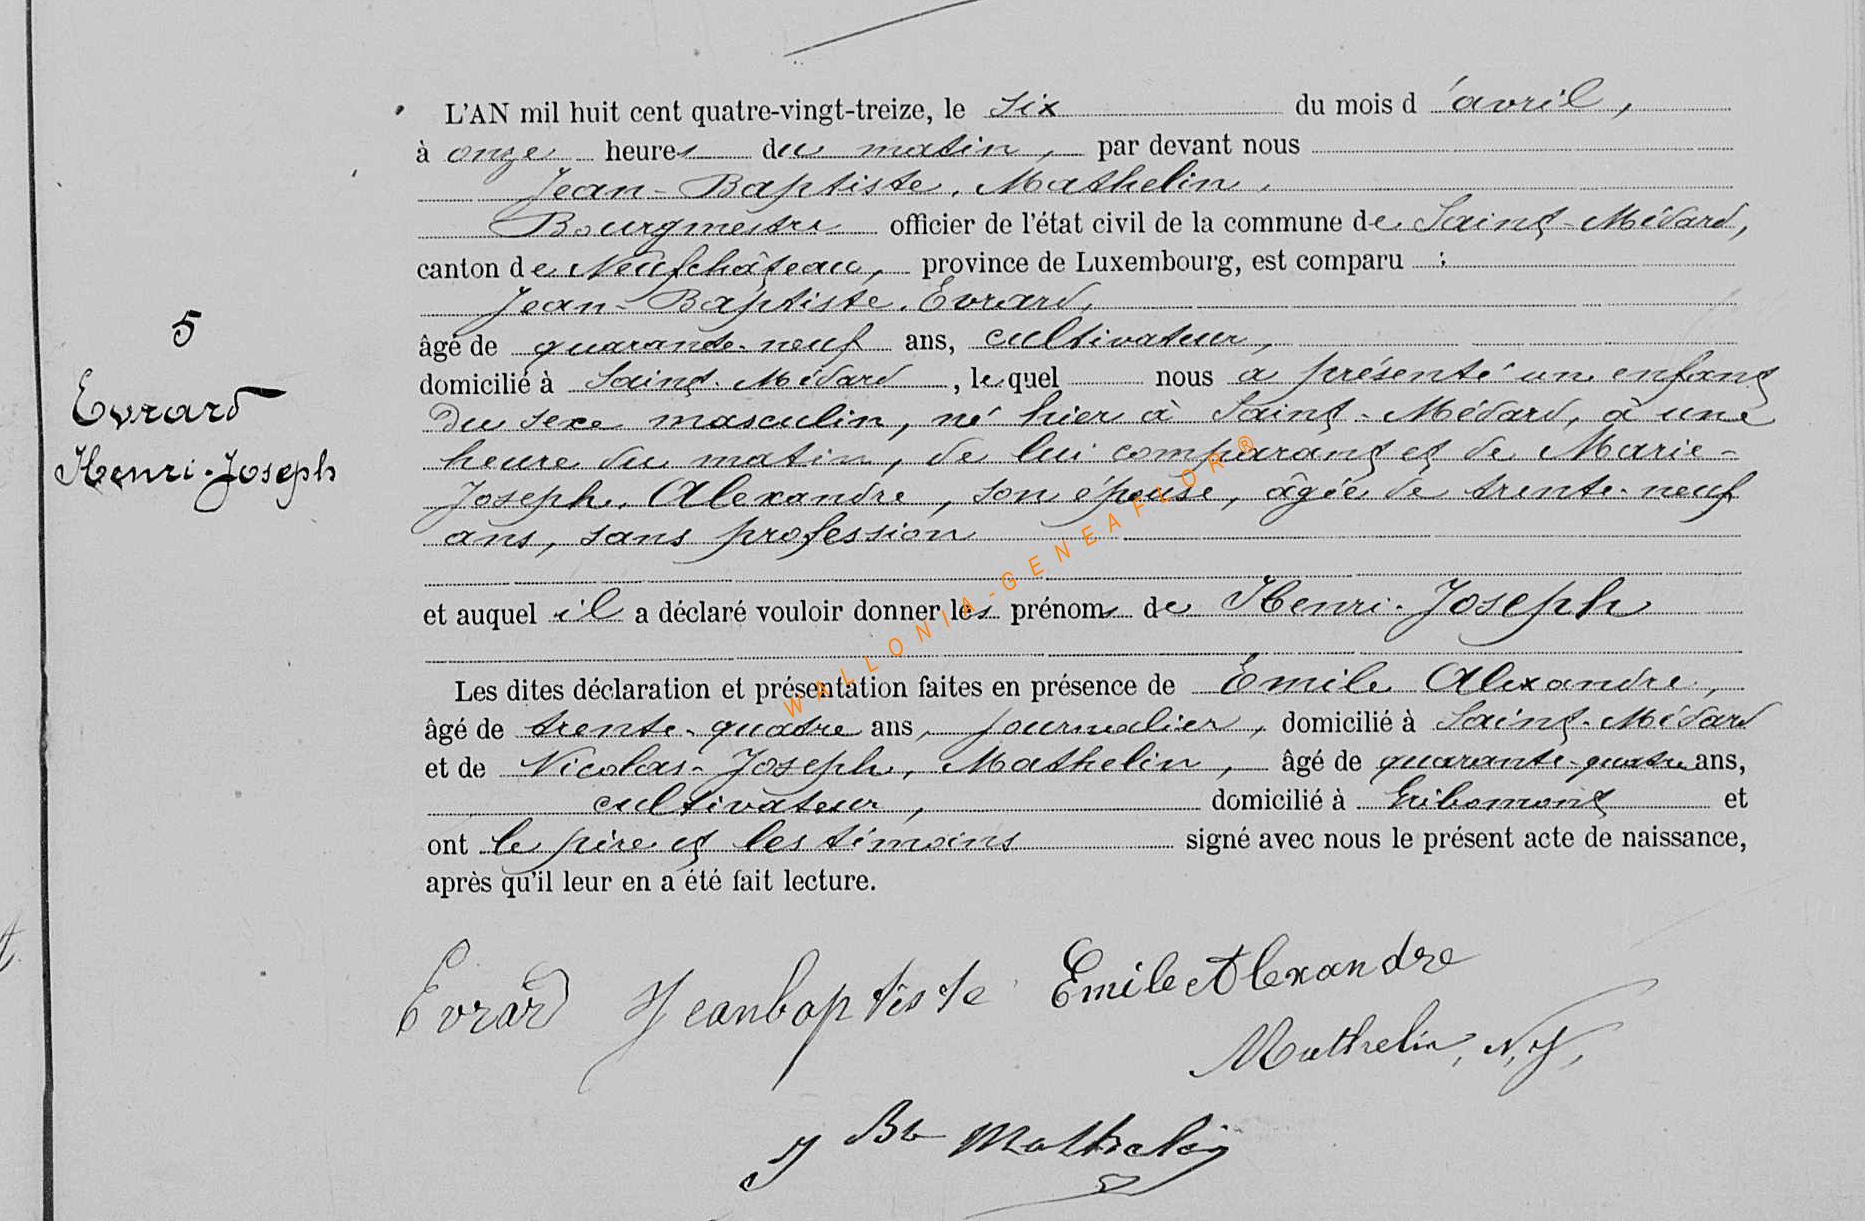 5
Evrard
Henri-Joseph
L'AN mil huit cent quatre-vingt-treize, le six du mois d'avril,
à onze heures du matin, par devant nous
Jean-Baptiste Mathelin,
Bourgmestre officier de l'état civil de la commune de Saint-Médard,
canton de Neufchâteau, province de Luxembourg, est comparu :
Jean-Baptiste Evrard,
âgé de quarante-neuf ans, cultivateur,
domicilié à Saint-Médard, lequel nous a présenté un enfant
du sexe masculin, né hier à Saint-Médard, à une
heure du matin, de lui comparant et de Marie-
Joseph Alexandre, son épouse, âgée de trente-neuf
ans, sans profession
et auquel il a déclaré vouloir donner les prénoms de Henri-Joseph
Les dites déclaration et présentation faites en présence de Emile Alexandre,
âgé de trente-quatre ans, journalier, domicilié à Saint-Médard
et de Nicolas-Joseph Mathelin, âgé de quarante-quatre ans,
cultivateur, domicilié à Gribomont et
ont le père et les témoins signé avec nous le présent acte de naissance,
après qu'il leur en a été fait lecture.
WALLONIA-GENEAFLOR®
Evrard Jeanbaptiste Emile Alexandre
Mathelin, N, J,
J Bte Mathelin